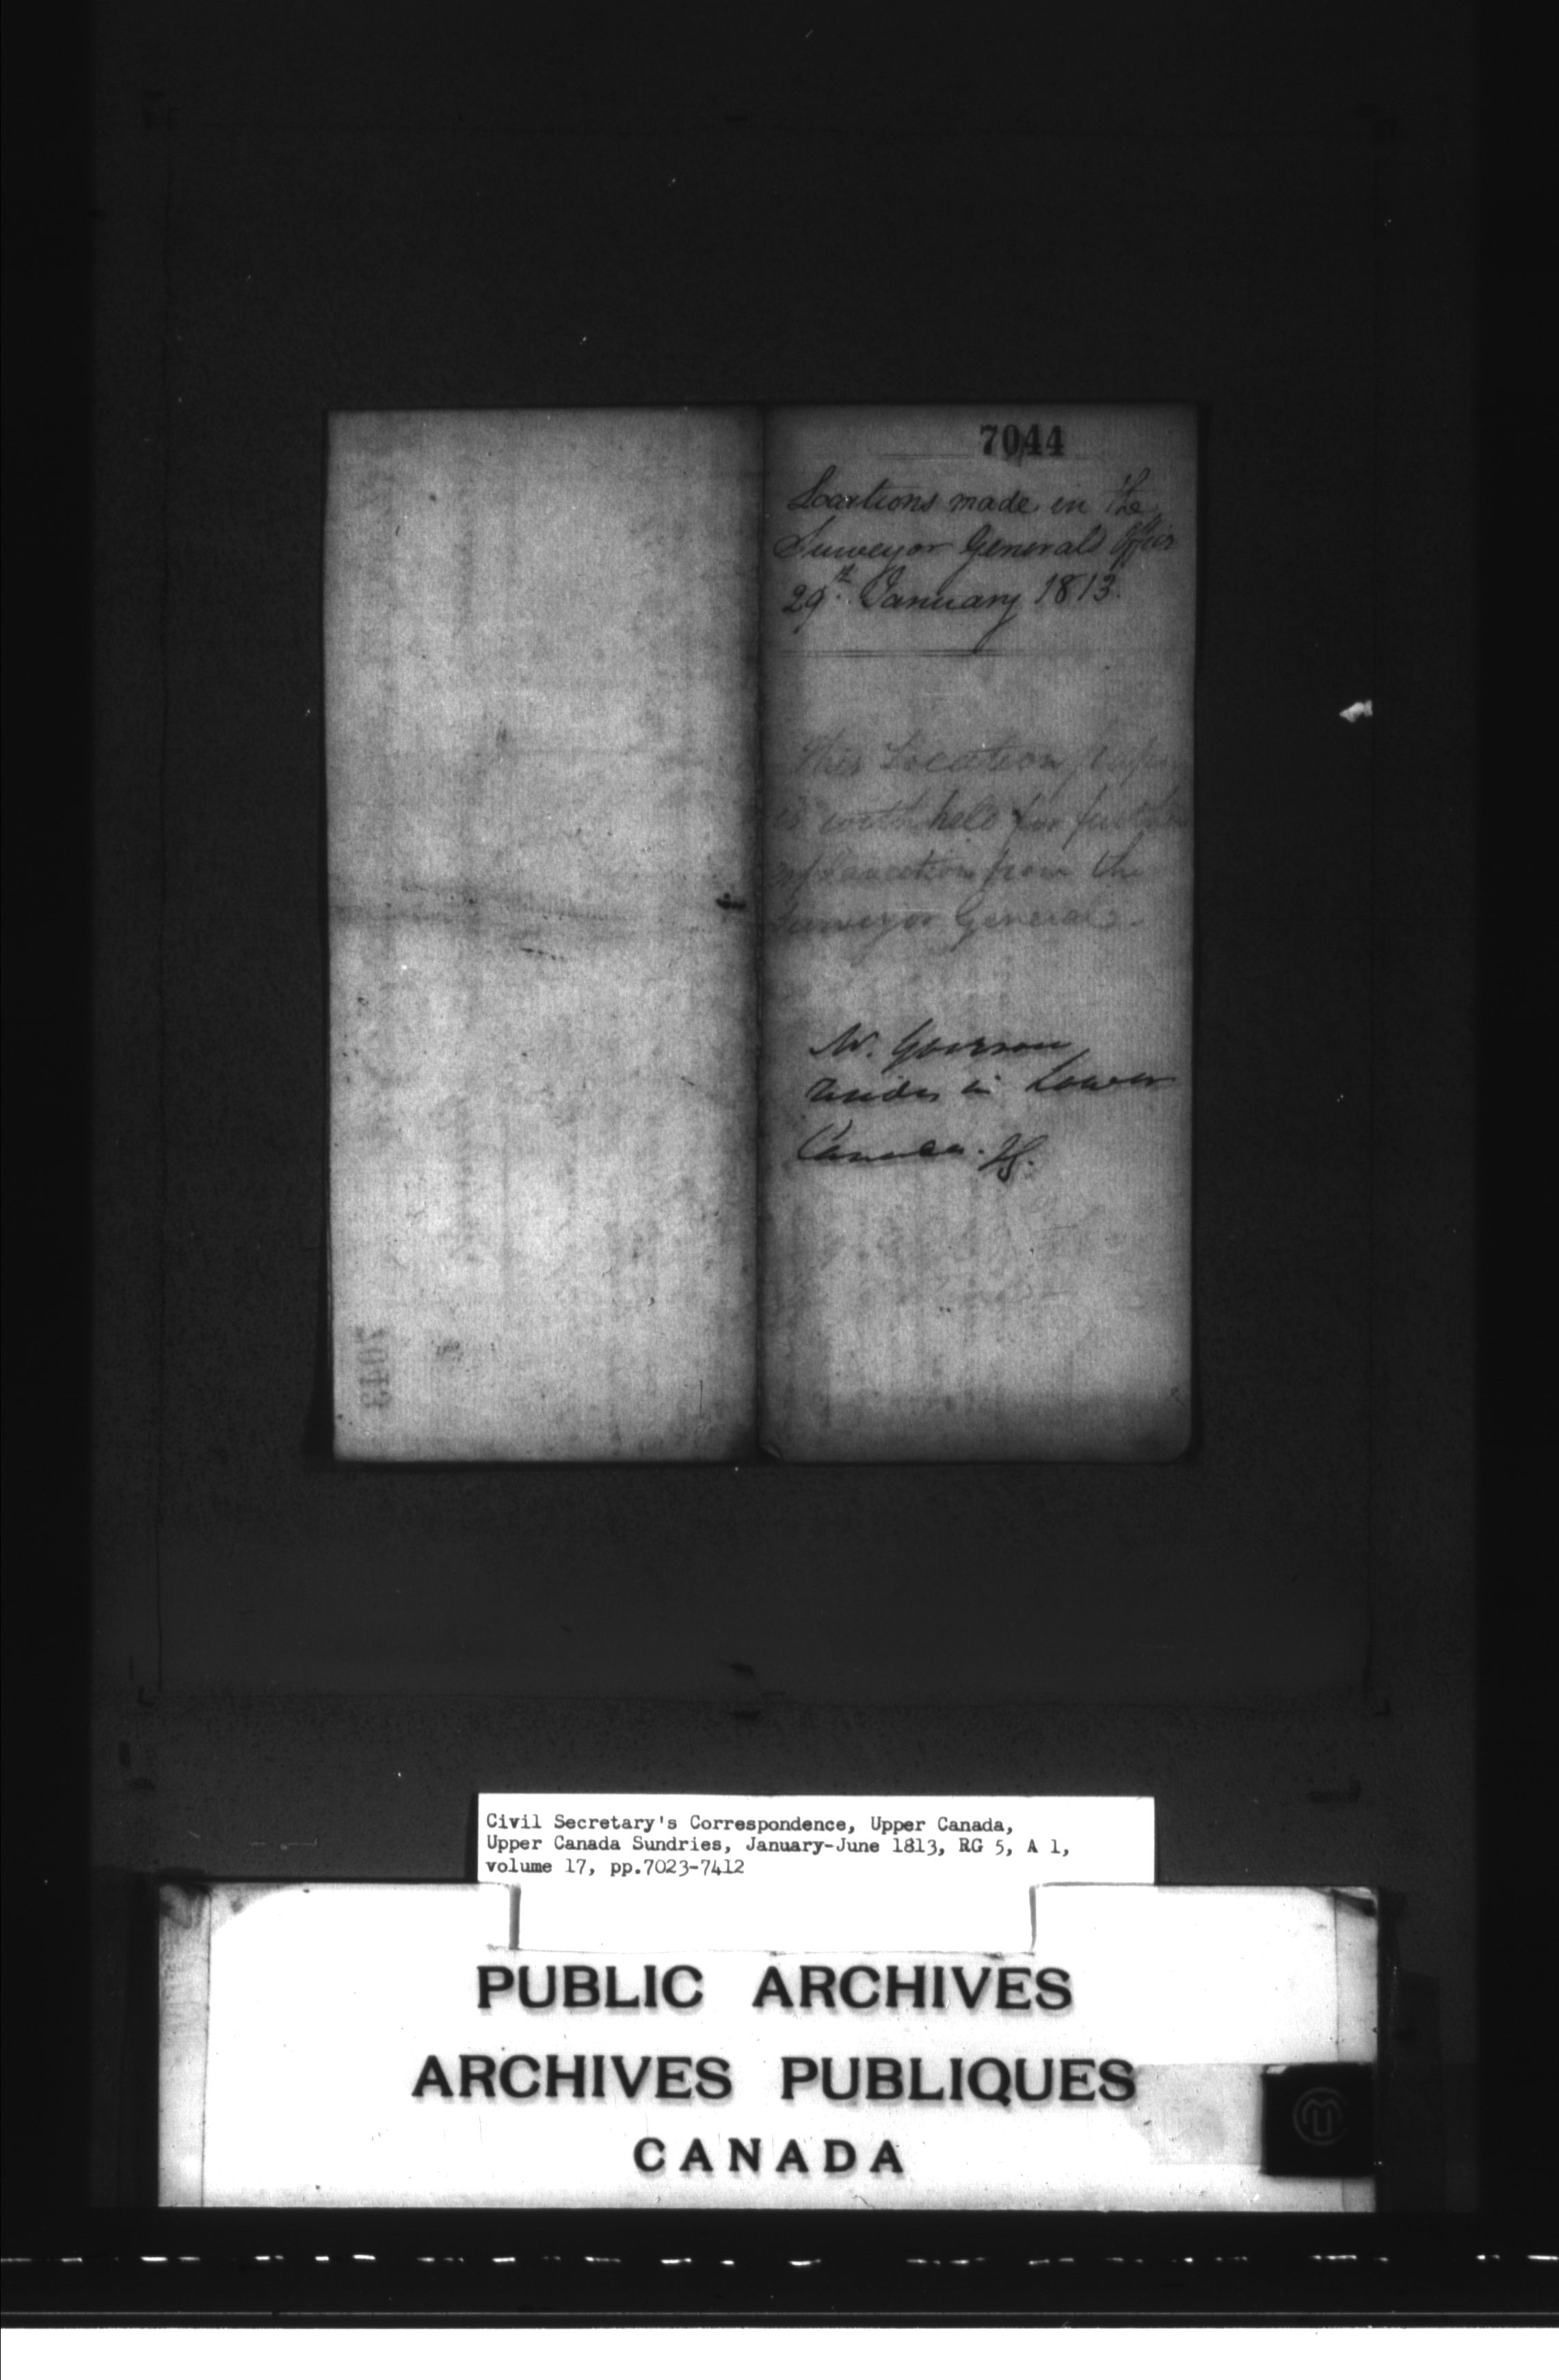 7044
Locations made in the
Surveyor Generals Office
29th January 1813.
This Location paper
is withheld for further
explanation from the
Surveyor General.
resides in Lower
Canada.
7043
Civil Secretary's Correspondence, Upper Canada,
Upper Canada Sundries, January-June 1813, RG 5, A 1,
volume 17, pp.7023-7412
PUBLIC ARCHIVES
ARCHIVES PUBLIQUES
CANADA